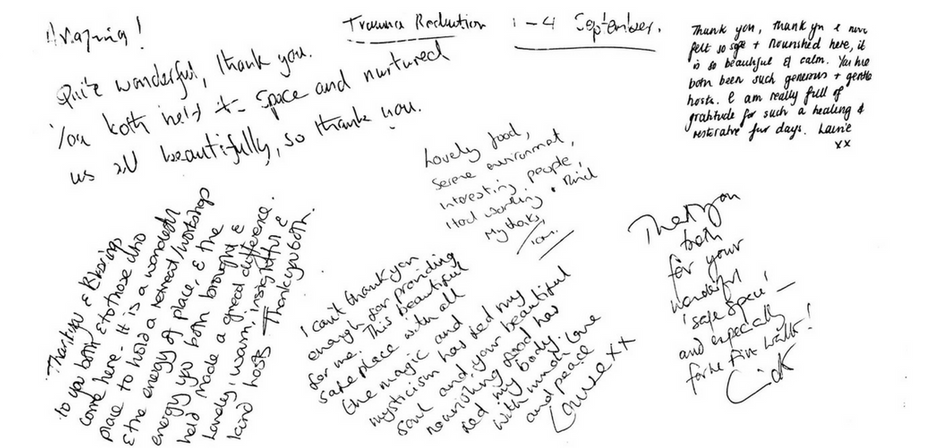 Amazing!
Trauma Reduction 1-4 September.
Quite wonderful, thank you.
You both held the space and nurtured
us all beautifully, so thank you.
Thank you, thank you I never
felt so safe + nourished here, it
is so beautiful & calm. You have
both been such generous + gentle
hosts. I am really full of
gratitude for such a healing &
restorative four days. Laurie
xx
Lovely food,
serene environment,
interesting people,
Hard working
My thanks,
Thank you & Blessings
to you both & to those who
come here. It is a wonderful
place to hold a retreat/workshop
& the energy of place, & the
energy you both brought &
held made a great difference.
Lovely, warm, insightful &
kind hosts Thank you both.
I can't thank you
enough for providing
for me. This beautiful
safe place with all
the magic and
mysticism has fed my
soul and your beautiful
nourishing food has
fed my body.
With much love
and peace
Louise xx
Thank you
both
for your
wonderful
'safe space' -
and especially
for the fire